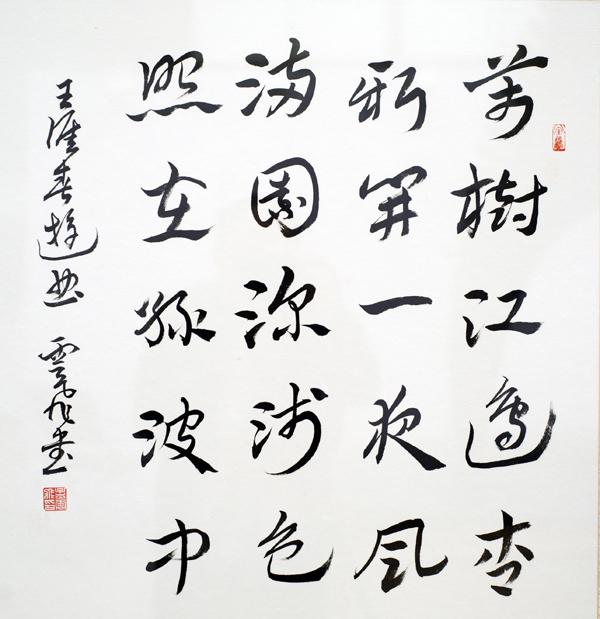 萬樹江邊杏
新開一夜風
滿園深淺色
照在綠波中
王涯春遊曲 雲書